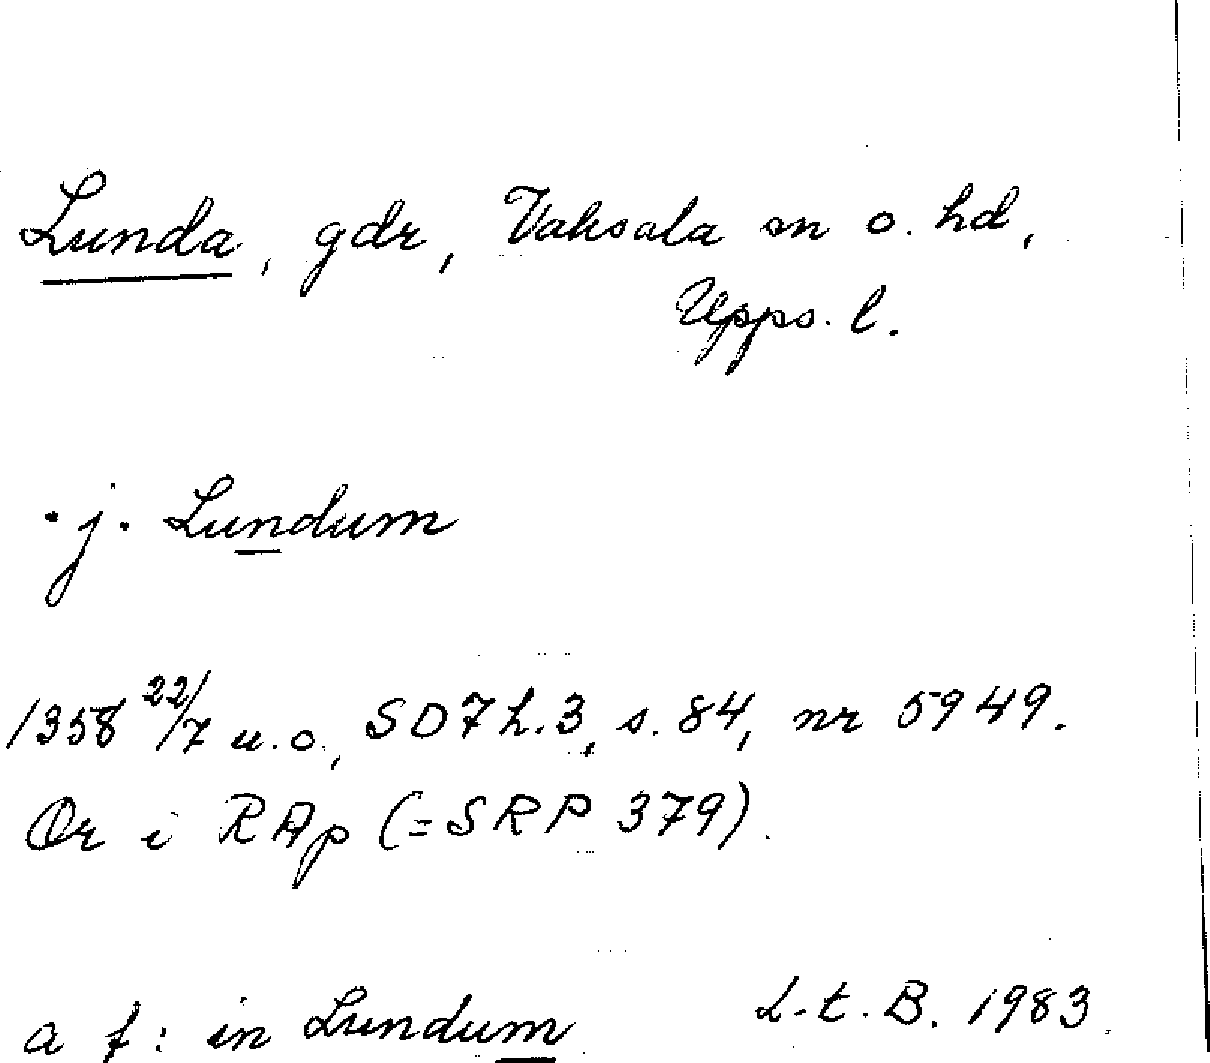 Lunda, gdr, Vaksala sn o. hd,
Upps. l.
.j. Lundum
1358 22/7 u.o., SD7 h.3, s. 84, nr 5949.
Or i RAp (=SRP 379).
a f: in Lundum L.t.B. 1983.